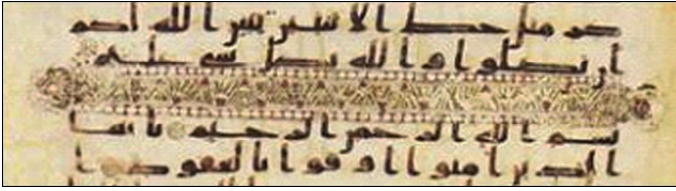 كر مثل حط الانثيين يبين الله لكم
ان تضلوا والله بكل شى عليم
بسم الله الرحمن الرحيم يايها
الذين امنوا اوفوا بالعقود ا